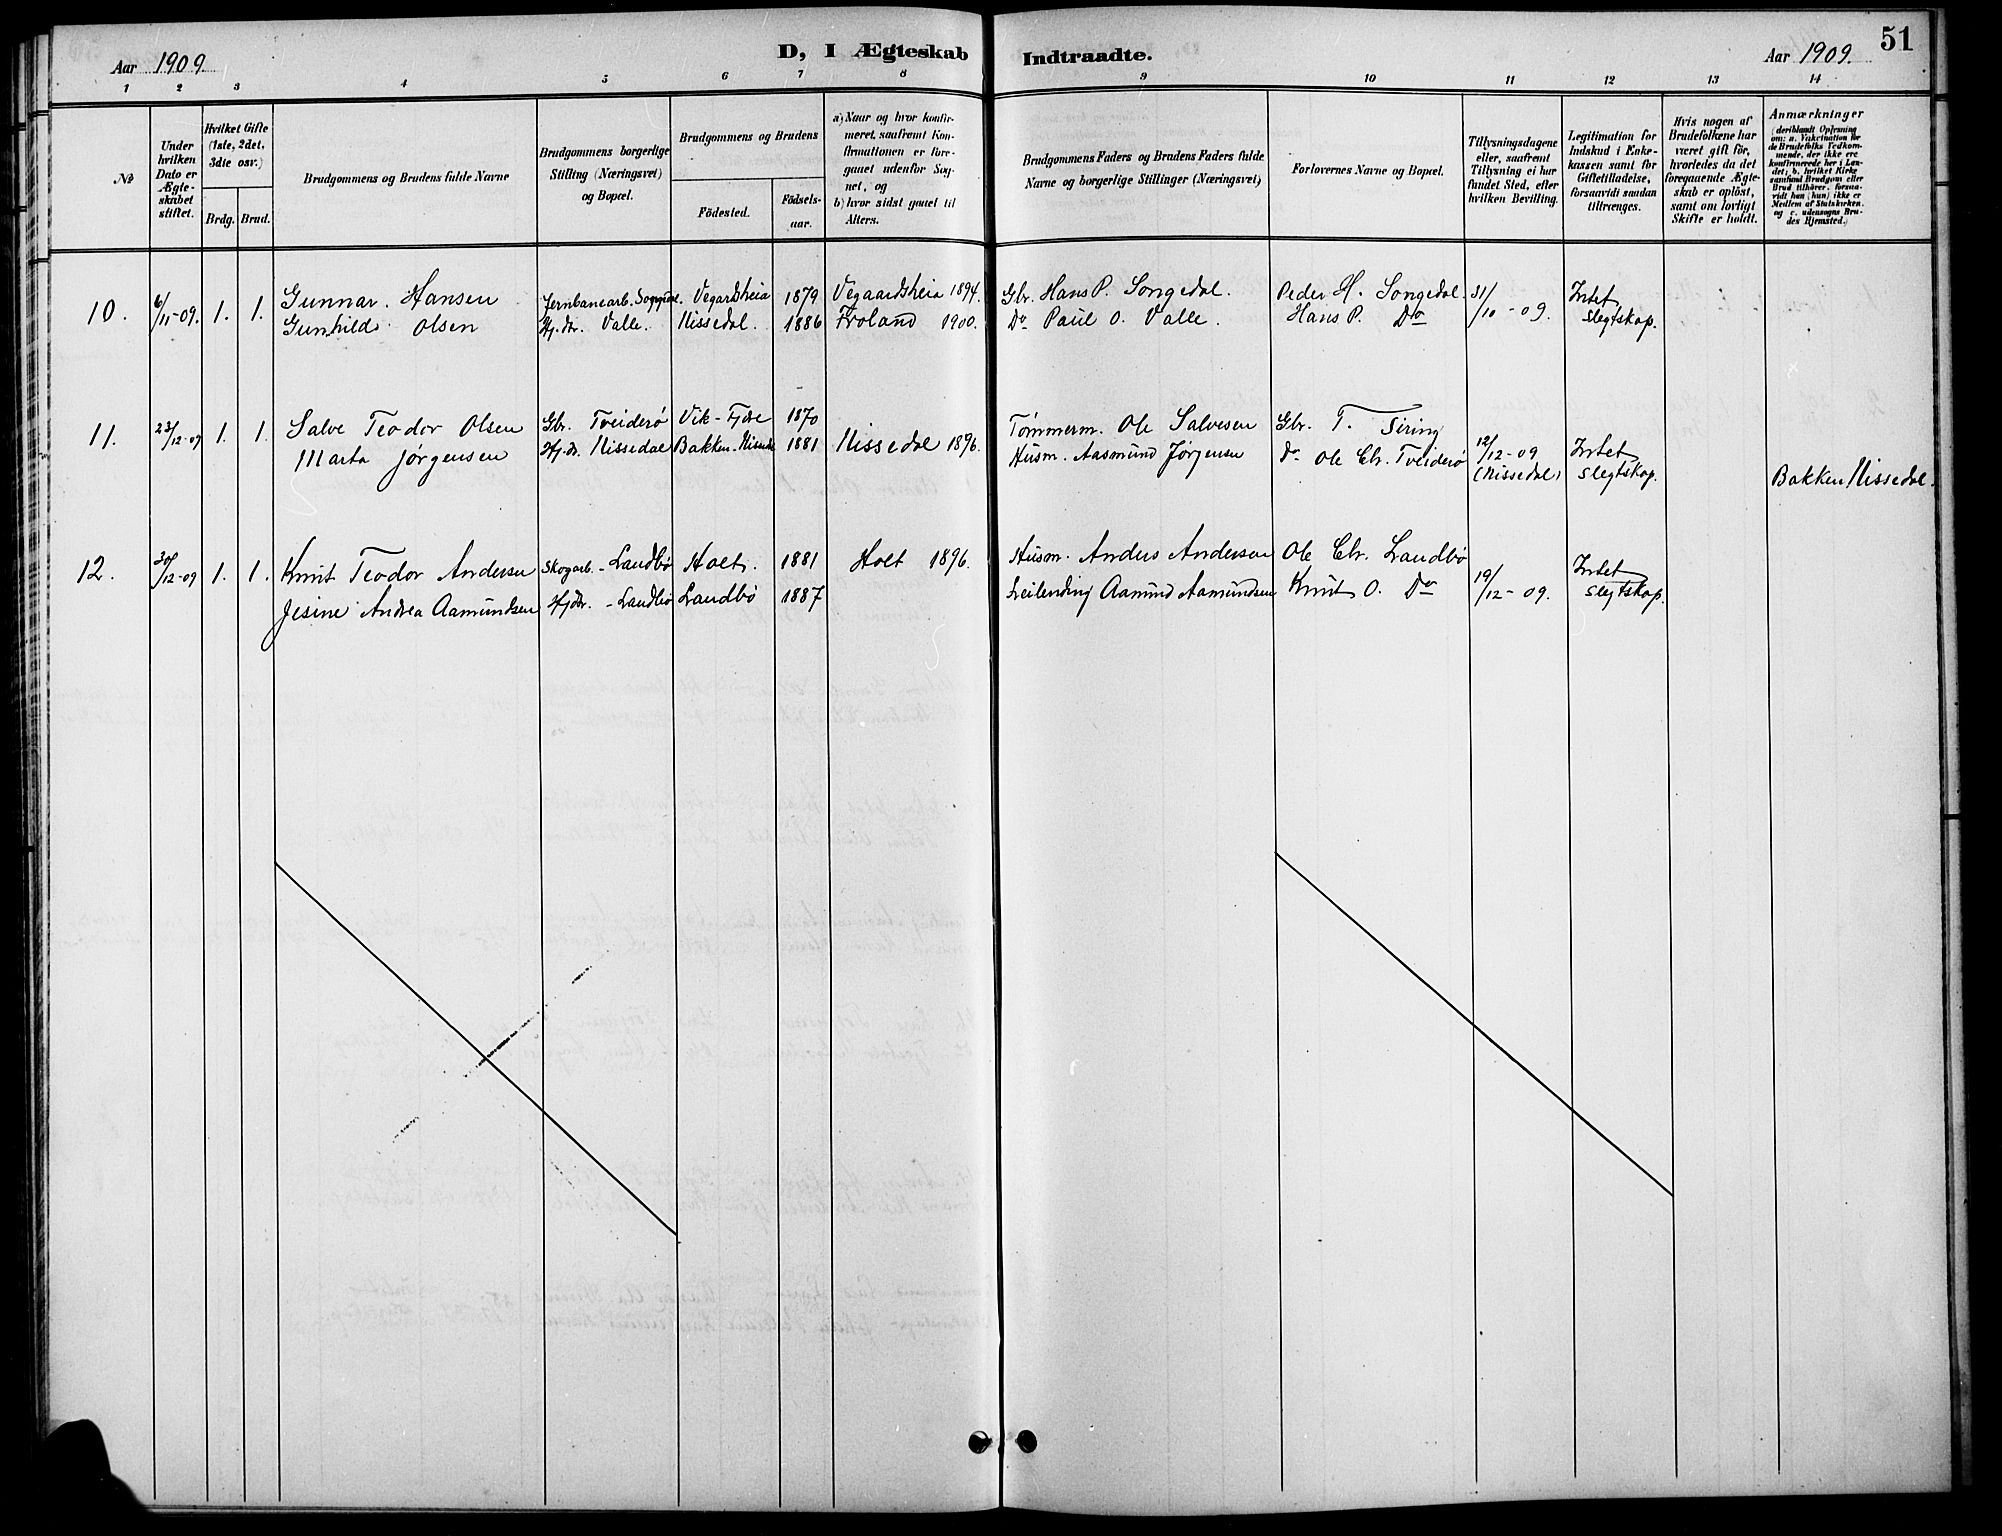 Aar 1909.
D, I Ægteskab
Indtraadte.
Aar 1909.
51
1 2 3 4 5 6 7 8 9 10 11 12 13 14
No
Under hvilken Dato er Ægteskabet stiftet.
Hvilket Gifte (1ste, 2det, 3die osv.)
Brdg. Brud.
Brudgommens og Brudens fulde Navne
Brudgommens borgerlige Stilling (Næringsvei) og Bopæl.
Brudgommens og Brudens
Födested.
Födsels-aar.
a) Naar og hvor konfirmeret, saafremt Konfirmationen er foregaaet udenfor Sognet, og
b) hvor sidst gaaet til Alters.
Brudgommens Faders og Brudens Faders fulde Navne og borgerlige Stillinger (Næringsvei)
Forlovernes Navne og Bopæl.
Tillysningsdagene eller, saafremt Tillysning ei har fundet Sted, efter hvilken Bevilling.
Legitimation for Indskud i Enkekassen samt for Giftetilladelse, forsaavidt saadan tiltrænges.
Hvis nogen af Brudefolkene har været gift för, hvorledes da det foregaaende Ægteskab er oplöst, samt om lovligt Skifte er holdt.
Anmærkninger
(deriblandt Oplysning om: a. Vakcination for de Brudefolks Vedkommende, der ikke ere konfirmerede her i Landet; b. hvilket Kirkesamfund Brudgom eller Brud tilhörer, forsaavidt han (hun) ikke er Medlem af Statskirken, og c. udensogns Brudes Hjemsted.)
10. 6/11-09. 1. 1. Gunnar Hansen Jernbanearb. Vegardsheia 1879 Vegaardsheia 1894. Gbr. Hans P. Songedal. Peder H. Songedal. 31/10-09. Intet
Gunhild Olsen Hj.dr. Valle. Nissedal. 1886 Froland 1900. Do Paul O. Valle. Hans P. Do Slegtskap.
11. 23/12-09 1. 1. Salve Teodor Olsen Gbr. Tveiderø Vik-Fjære 1870 Tømmerm. Ole Salvesen Gbr. T. Siring 12/12-09 Intet
Marta Jørgensen Hj.dr. Nissedal Bakken-Nissedal 1881 Nissedal 1896. Husm. Aasmund Jørgensen Do Ole Chr. Tveiderø (Nissedal) Slegtskap. Bakken Nissedal.
12. 30/12-09 1. 1. Knut Teodor Andersen Skogarb. - Landbø Holt. 1881 Holt 1896. Husm. Anders Andersen Ole Chr. Landbø 19/12-09. Intet
Jesine Andrea Aamundsen Hjdr. - Landbø Landbø 1887 Leilending Aamund Aamundsen Knut O. Do Slegtskap.